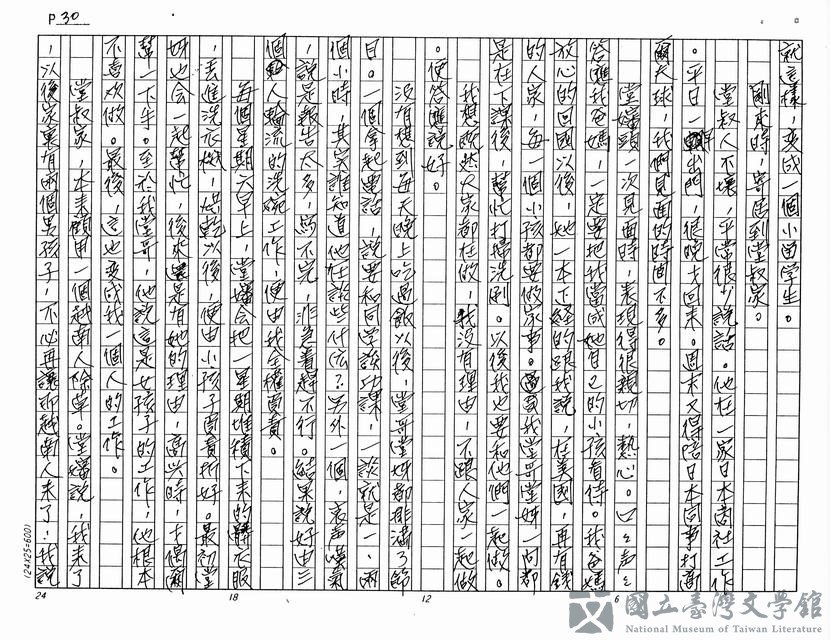 P 30
就這樣，变成一個小留学生。
剛來時，寄居到堂叔家。
堂叔人不壞，平常很少說話。他在一家日本商社工作
。平日一早出門，很晚才回来。週末又得陪日本同事打高
爾夫球，我們見面的時間不多。
堂嬸頭一次見面時，表現得很親切，熱心。口口声声
答應我爸媽，一定要把我當成她自己的小孩看待。我爸媽
放心的回國以後，她一本正經的跟我說，在美國，再有錢
的人家，每一個小孩都要做家事。我堂哥堂姊一向都
是在下課後，幫忙打掃洗刷。以後我也要和他們一起做。
我想既然大家都在做，我沒有理由，不跟人家一起做
。便答應說好。
沒有想到每天晚上吃過飯以後，堂哥堂姊都排滿了節
目。一個拿起電話，說要和同学談功課，一談就是一、兩
個小時，其实誰知道他在談些什広？另外一個，哀声嘆氣
，說是報告太多，寫不完，非急着趕不行。結果說好由三
個人輪流的洗碗工作，便由我全權負責。
每個星期六早上，堂嬸会把一星期堆積下来的髒衣服
，丢進洗衣機，烘乾以後，便由小孩子負責折好。最初堂
姊也会一起幫忙，後來還是有她的理由，高兴時，才偶爾
幫一下手。至於我堂哥，他說這是女孩子的工作，他根本
不喜欢做。最後，這也变成我一個人的工作。
堂叔家，本来顧用一個越南人除草。堂嬸說，我来了
，以後家裏有兩個男孩子，不必再讓那越南人来了，我說
24
18
12
6
(24X25=600)
國立臺灣文学館
National Museum of Taiwan Literature